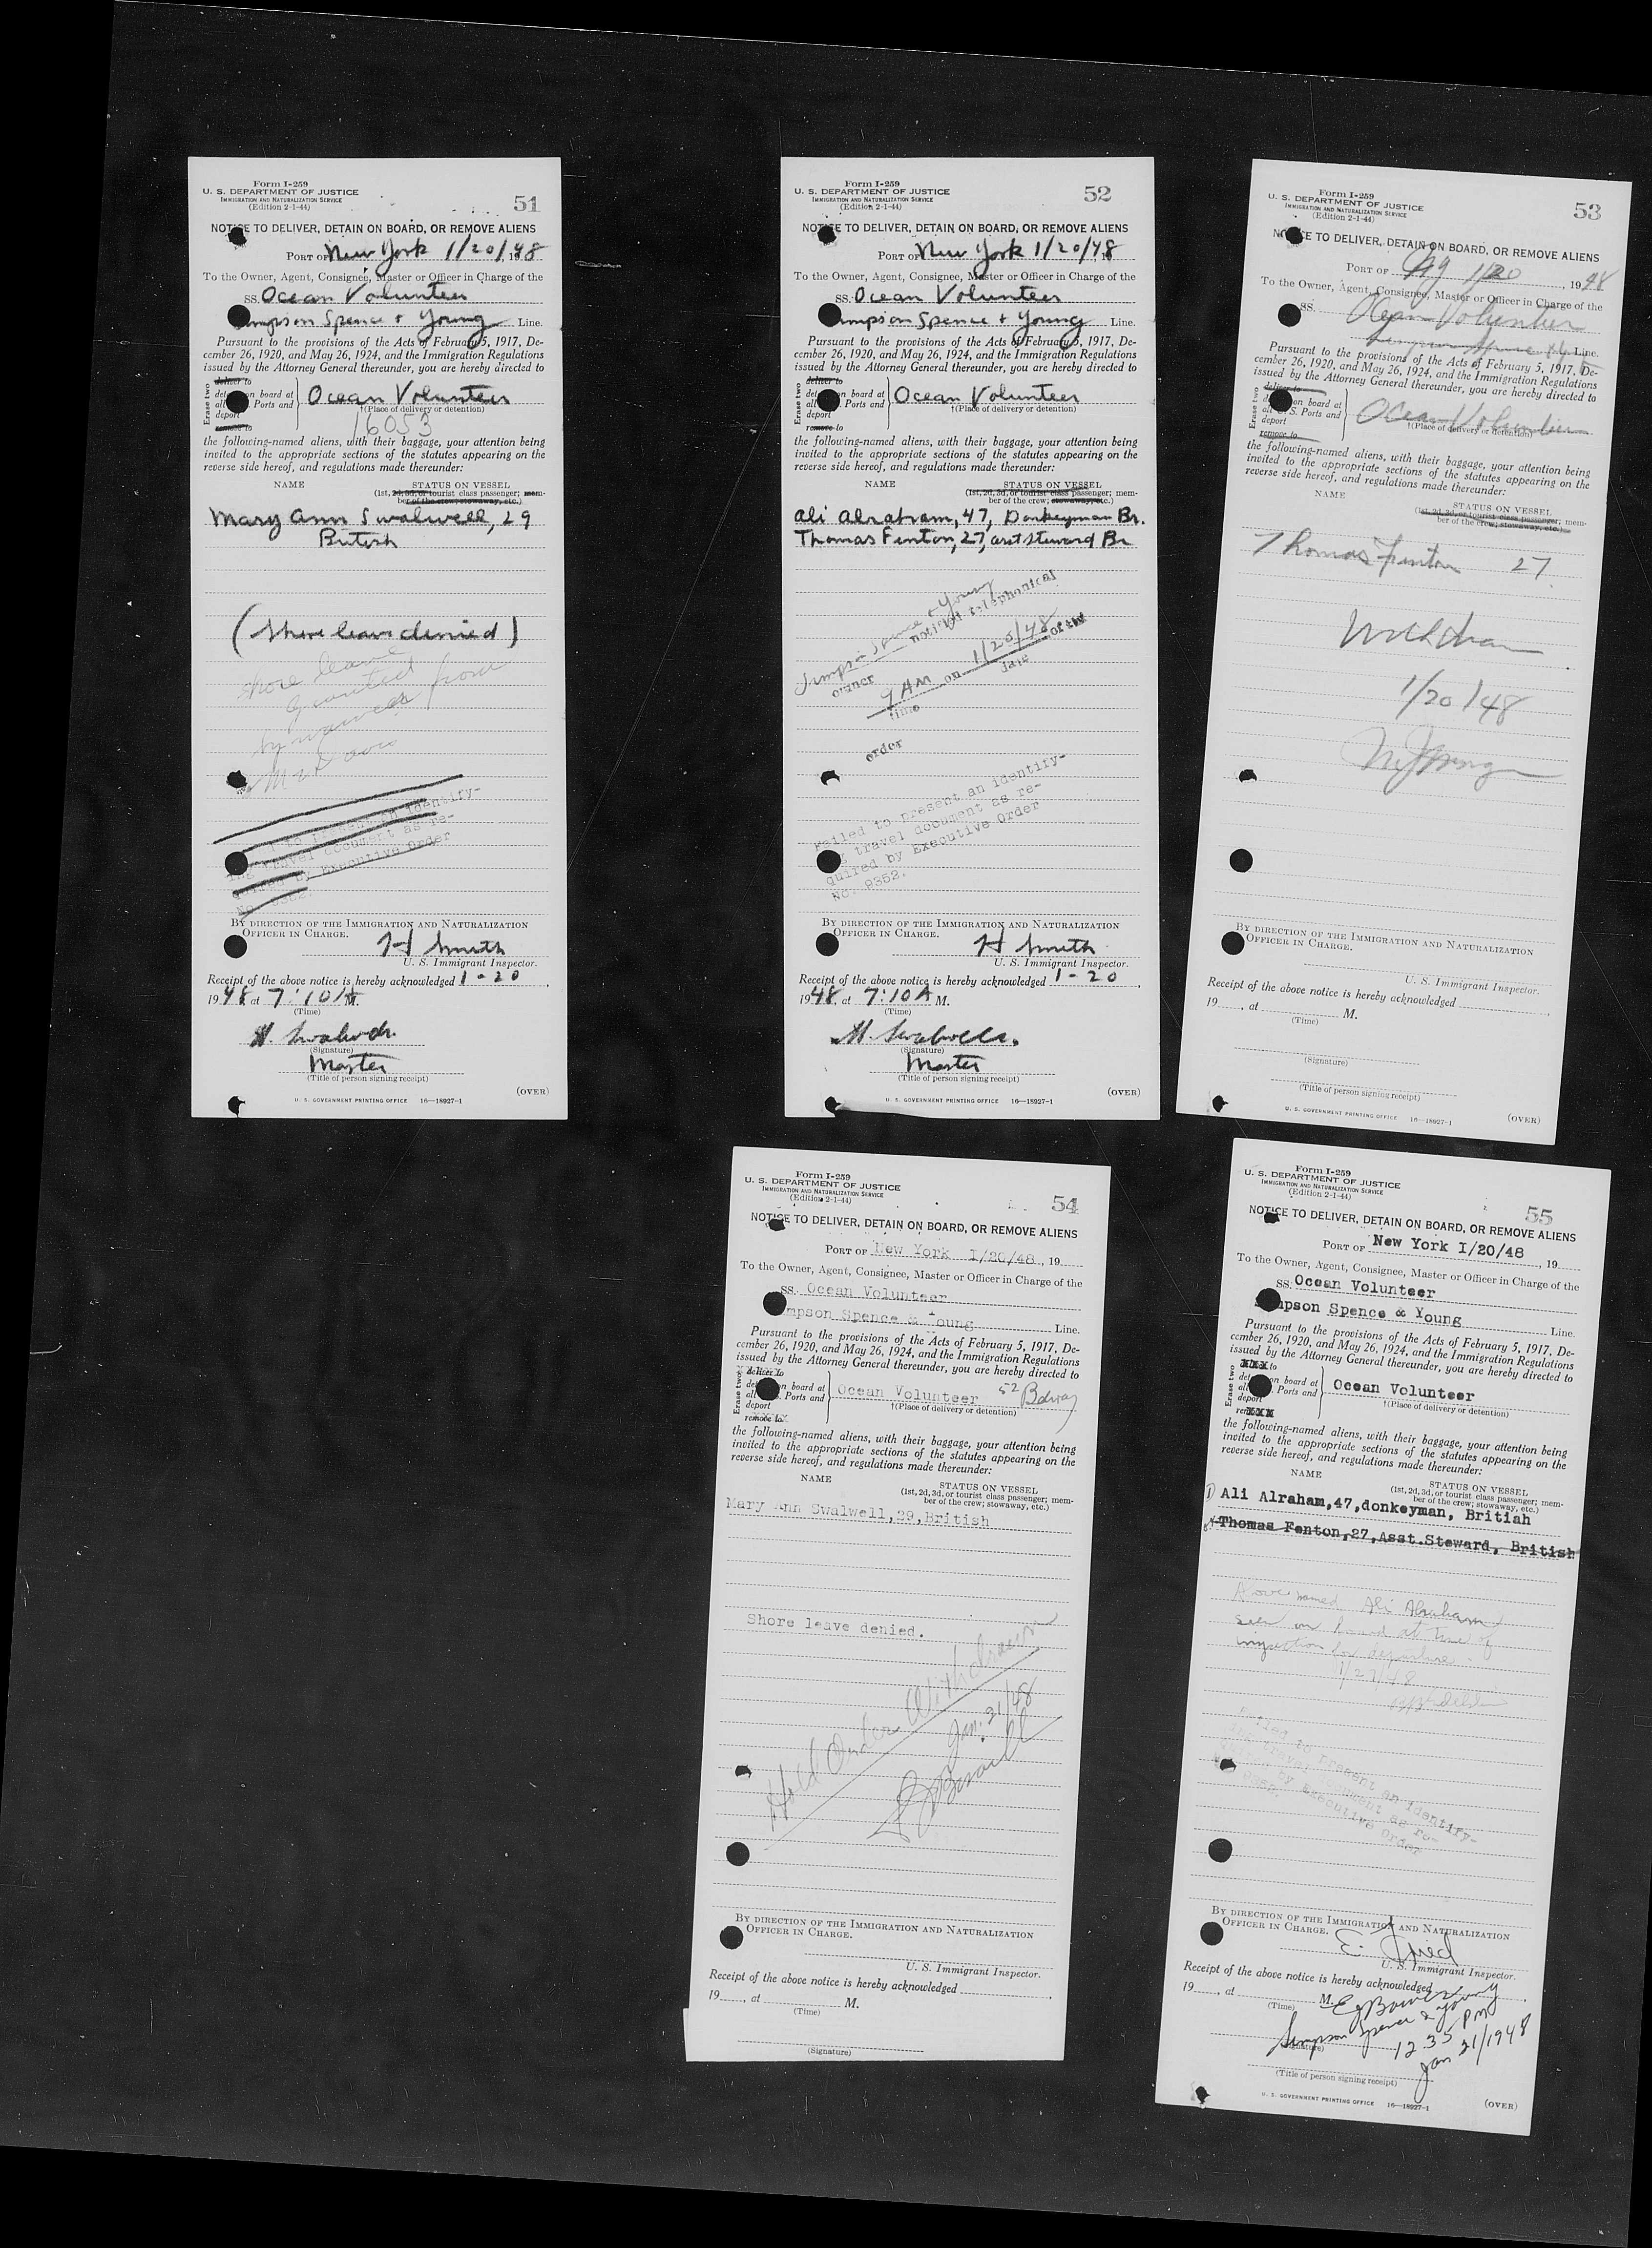 Form I-259
U. S. DEPARTMENT OF JUSTICE
IMMIGRATION AND NATURALIZATION SERVICE
(Edition 2-1-44)
51
NOTICE TO DELIVER, DETAIN ON BOARD, OR REMOVE ALIENS
PORT OF New York 1/20/1948
To the Owner, Agent, Consignee, Master or Officer in Charge of the
SS. Ocean Volunteer
Simpson Spence + Young Line.
Pursuant to the provisions of the Acts of February 5, 1917, De-
cember 26, 1920, and May 26, 1924, and the Immigration Regulations
issued by the Attorney General thereunder, you are hereby directed to
Erase two
deliver to
det on board at
all Ports and
deport
remove to
Ocean Volunteer
†(Place of delivery or detention)
16053
the following-named aliens, with their baggage, your attention being
invited to the appropriate sections of the statutes appearing on the
reverse side hereof, and regulations made thereunder:
NAME
STATUS ON VESSEL
(1st, 2d, 3d, or tourist class passenger; mem-
ber of the crew; stowaway, etc.)
Mary Ann Swalwell, 29
British
(Shore leave denied)
shore leave
granted
by
from
to present an identify-
ing travel document as re-
quired by Executive Order
BY DIRECTION OF THE IMMIGRATION AND NATURALIZATION
OFFICER IN CHARGE.
H Smith
U. S. Immigrant Inspector.
Receipt of the above notice is hereby acknowledged 1-20
1948 at 7:10 A M.
(Time)
M. Swalwell.
(Signature)
Master
(Title of person signing receipt)
(OVER)
U. S. GOVERNMENT PRINTING OFFICE 16—18927-1
Form I-259
U. S. DEPARTMENT OF JUSTICE
IMMIGRATION AND NATURALIZATION SERVICE
(Edition 2-1-44)
52
NOTICE TO DELIVER, DETAIN ON BOARD, OR REMOVE ALIENS
PORT OF New York 1/20/48
To the Owner, Agent, Consignee, Master or Officer in Charge of the
SS. Ocean Volunteer
Simpson Spence + Young Line.
Pursuant to the provisions of the Acts of February 5, 1917, De-
cember 26, 1920, and May 26, 1924, and the Immigration Regulations
issued by the Attorney General thereunder, you are hereby directed to
Erase two
deliver to
det on board at
all Ports and
deport
remove to
Ocean Volunteer
†(Place of delivery or detention)
the following-named aliens, with their baggage, your attention being
invited to the appropriate sections of the statutes appearing on the
reverse side hereof, and regulations made thereunder:
NAME
STATUS ON VESSEL
(1st, 2d, 3d, or tourist class passenger; mem-
ber of the crew; stowaway, etc.)
Ali Alraham, 47, Donkeyman Br.
Thomas Fenton, 27, asst steward Br
Simpson Spence + Young notified telephonical
owner
9 AM on 1/20/48 of the
time date
order
Failed to present an identify-
ing travel document as re-
quired by Executive Order
No. 9352.
BY DIRECTION OF THE IMMIGRATION AND NATURALIZATION
OFFICER IN CHARGE.
H Smith
U. S. Immigrant Inspector.
Receipt of the above notice is hereby acknowledged 1-20
1948, at 7:10 A M.
(Time)
M. Swalwell.
(Signature)
Master
(Title of person signing receipt)
(OVER)
U. S. GOVERNMENT PRINTING OFFICE 16—18927-1
Form I-259
U. S. DEPARTMENT OF JUSTICE
IMMIGRATION AND NATURALIZATION SERVICE
(Edition 2-1-44)
53
NOTICE TO DELIVER, DETAIN ON BOARD, OR REMOVE ALIENS
PORT OF NY 1/20, 1948
To the Owner, Agent, Consignee, Master or Officer in Charge of the
SS. Ocean Volunteer
Simpson Spence Line.
Pursuant to the provisions of the Acts of February 5, 1917, De-
cember 26, 1920, and May 26, 1924, and the Immigration Regulations
issued by the Attorney General thereunder, you are hereby directed to
Erase two
deliver to
on board at
all U. S. Ports and
deport
remove to
Ocean Volunteer
†(Place of delivery or detention)
the following-named aliens, with their baggage, your attention being
invited to the appropriate sections of the statutes appearing on the
reverse side hereof, and regulations made thereunder:
NAME
STATUS ON VESSEL
(1st, 2d, 3d, or tourist class passenger; mem-
ber of the crew; stowaway, etc.)
Thomas Fenton 27
Withdrawn
1/20/48
BY DIRECTION OF THE IMMIGRATION AND NATURALIZATION
OFFICER IN CHARGE.
U. S. Immigrant Inspector.
Receipt of the above notice is hereby acknowledged
19 , at M.
(Time)
(Signature)
(Title of person signing receipt)
(OVER)
U. S. GOVERNMENT PRINTING OFFICE 16—18927-1
Form I-259
U. S. DEPARTMENT OF JUSTICE
IMMIGRATION AND NATURALIZATION SERVICE
(Edition 2-1-44)
54
NOTICE TO DELIVER, DETAIN ON BOARD, OR REMOVE ALIENS
PORT OF New York I/20/48, 19
To the Owner, Agent, Consignee, Master or Officer in Charge of the
SS. Ocean Volunteer
mpson Spence & Young Line.
Pursuant to the provisions of the Acts of February 5, 1917, De-
cember 26, 1920, and May 26, 1924, and the Immigration Regulations
issued by the Attorney General thereunder, you are hereby directed to
Erase two
deliver to
det on board at
all Ports and
deport
remove to
Ocean Volunteer 52 Bdway
†(Place of delivery or detention)
the following-named aliens, with their baggage, your attention being
invited to the appropriate sections of the statutes appearing on the
reverse side hereof, and regulations made thereunder:
NAME
STATUS ON VESSEL
(1st, 2d, 3d, or tourist class passenger; mem-
ber of the crew; stowaway, etc.)
Mary Ann Swalwell,29,British
Shore leave denied.
Hold Order Withdrawn
Jan. 21/48
BY DIRECTION OF THE IMMIGRATION AND NATURALIZATION
OFFICER IN CHARGE.
U. S. Immigrant Inspector.
Receipt of the above notice is hereby acknowledged
19 , at M.
(Time)
(Signature)
Form I-259
U. S. DEPARTMENT OF JUSTICE
IMMIGRATION AND NATURALIZATION SERVICE
(Edition 2-1-44)
55
NOTICE TO DELIVER, DETAIN ON BOARD, OR REMOVE ALIENS
PORT OF New York I/20/48, 19
To the Owner, Agent, Consignee, Master or Officer in Charge of the
SS. Ocean Volunteer
mpson Spence & Young Line.
Pursuant to the provisions of the Acts of February 5, 1917, De-
cember 26, 1920, and May 26, 1924, and the Immigration Regulations
issued by the Attorney General thereunder, you are hereby directed to
Erase two
XXX to
det on board at
all Ports and
deport
reXXX
Ocean Volunteer
†(Place of delivery or detention)
the following-named aliens, with their baggage, your attention being
invited to the appropriate sections of the statutes appearing on the
reverse side hereof, and regulations made thereunder:
NAME
STATUS ON VESSEL
(1st, 2d, 3d, or tourist class passenger; mem-
ber of the crew; stowaway, etc.)
Ali Alraham,47,donkeyman, Britiah
Thomas Fenton,27,Asst.Steward, British
Above named Ali Abraham
seen on board at time of
inspection for departure.
1/27/48
Failed to present an identify-
ing travel document as re-
quired by Executive Order
No. 9352.
BY DIRECTION OF THE IMMIGRATION AND NATURALIZATION
OFFICER IN CHARGE.
E. Fried
U. S. Immigrant Inspector.
Receipt of the above notice is hereby acknowledged
19 , at M.
(Time)
Simpson Spence & Young
(Signature)
12 35 PM
Jan 21/1948
(Title of person signing receipt)
(OVER)
U. S. GOVERNMENT PRINTING OFFICE 16—18927-1